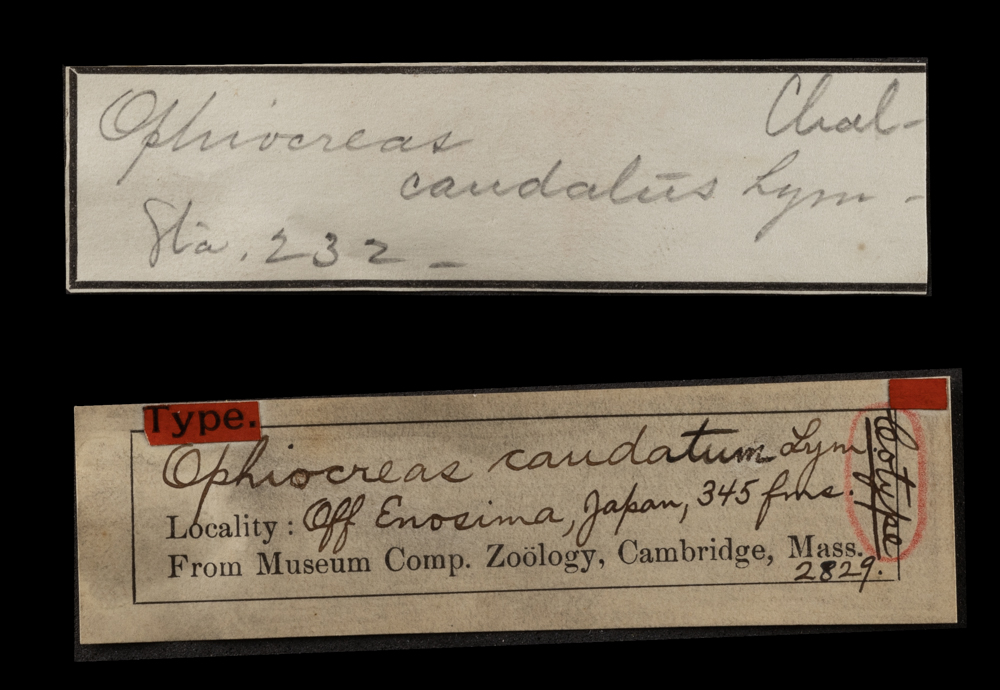 Ophiocreas Chal-
caudatus Lym-
Sta. 232-
Type.
Ophiocreas caudatum Lym
Locality: Off Enosima, Japan, 345 fms.
From Museum Comp. Zoölogy, Cambridge, Mass.
2829.
Cotype